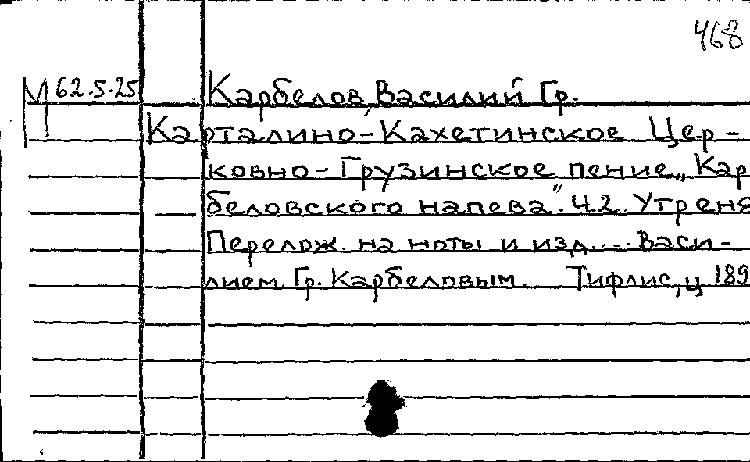 468
М 62.5.25 Карбелов, Василий Гр.
Карталино-Кахетинское Цер-
ковно-Грузинское пение „Кар
беловского напева". Ч.2. Утреня
Перелож. на ноты и изд. - Васи-
лием Гр. Карбеловым. Тифлис, ц 189